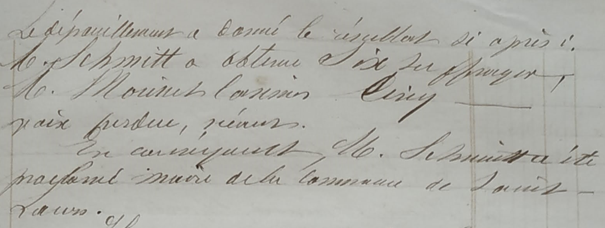 Le dépouillement a donné le résultat si après :
M. Schmitt a obtenu Six suffrages,
M. Casimir Cinq
voix perdue, néant.
En conséquent M. Schmitt a été
proclamé maire de la Commune de Saint-